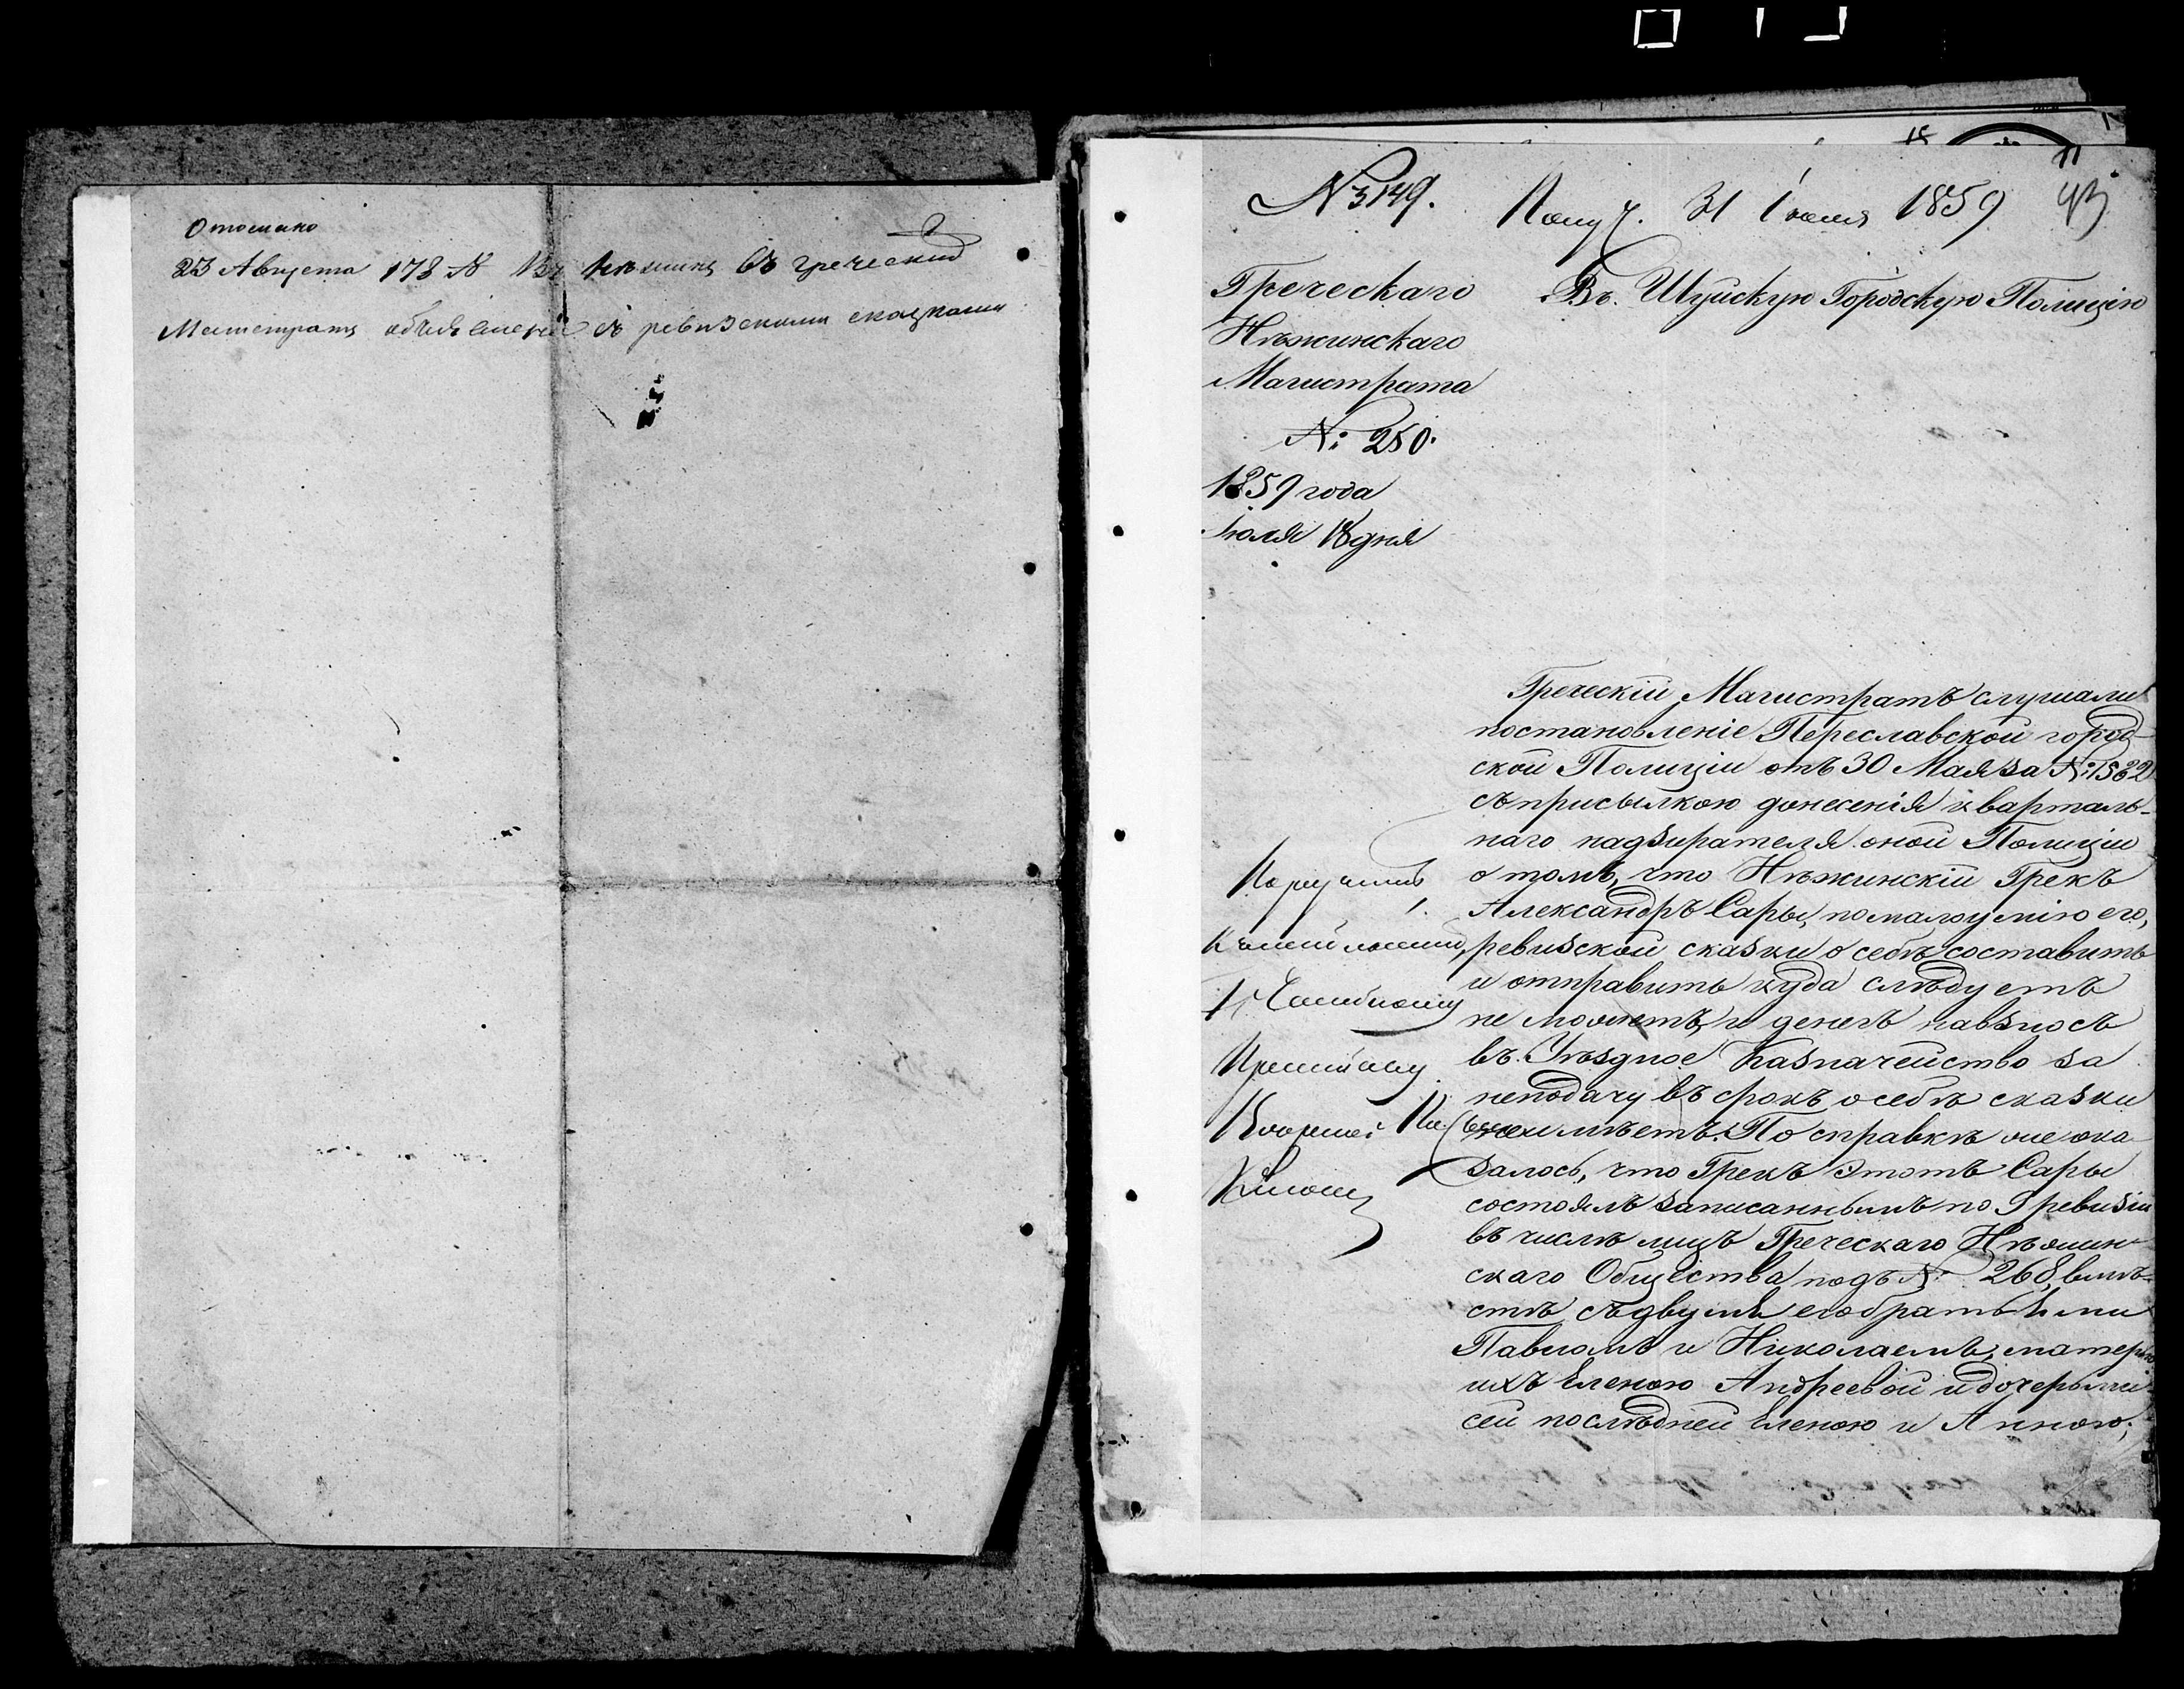 Отослано
23 Августа 178 № въ Нѣжинъ въ греческий
Магистратъ объявление съ ревизскими сказками
11
№ 3149. Получ. 31 Июля 1859 43
Греческаго
Нѣжинскаго
Магистрата
№: 250.
1859 года
Июля 18 дня
Въ. Шуйскую Городскую Полицію
Греческій Магистратъ слушали
постановленіе Переславской город-
ской Полиціи отъ 30 Мая за №: 1582
съ присылкою донесенія кварталь-
наго надзирателя оной Полиціи
о томъ, что Нѣжинскій Грекъ
Александръ Сары, по малоумію его,
ревизской сказки о себѣ составить
и отправить куда слѣдуетъ
не можетъ, и денегъ на взносъ
въ. Уѣздное Казначейство за
неподачу въ срокъ о себѣ сказки
не имѣетъ. По справкѣ же ока-
залось, что Грекъ этотъ Сары
состоялъ записаннымъ по 9 ревизіи
въ числѣ лицъ Греческаго Нѣжин-
скаго Общества подъ №: 268, вмѣ-
стѣ съ двумя его братьями
Павломъ и Николаемъ, матерью
ихъ Еленою Андреевой и дочерьми
сей послѣдней Еленою и Анною;
Поручить